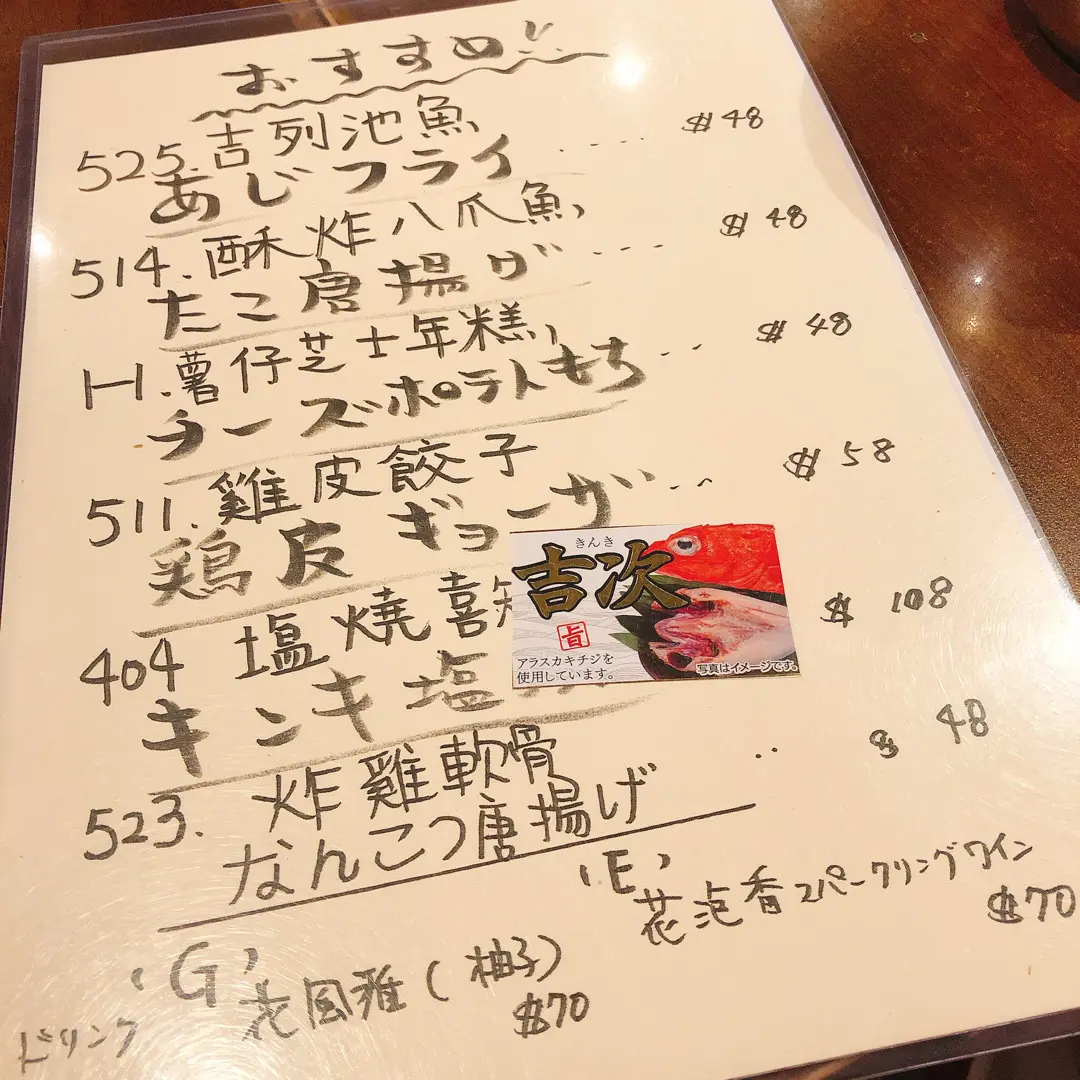 おすすめ!
525. 吉列池魚 ---- $48
あじフライ
514. 酥炸八爪魚 ---- $48
たこ唐揚げ
H1. 薯仔芝士年糕 -- $48
チーズポテトもち
511. 雞皮餃子 -- $58
鶏皮ギョーザ
404 塩燒喜 $108
キンキ塩
きんき
吉次
旨
アラスカキチジを
使用しています。
写真はイメージです。
523. 炸雞軟骨 ‥ $48
なんこつ唐揚げ
'E'
花泡香スパークリングワイン
$70
'G'
花風雅(柚子)
$70
ドリンク